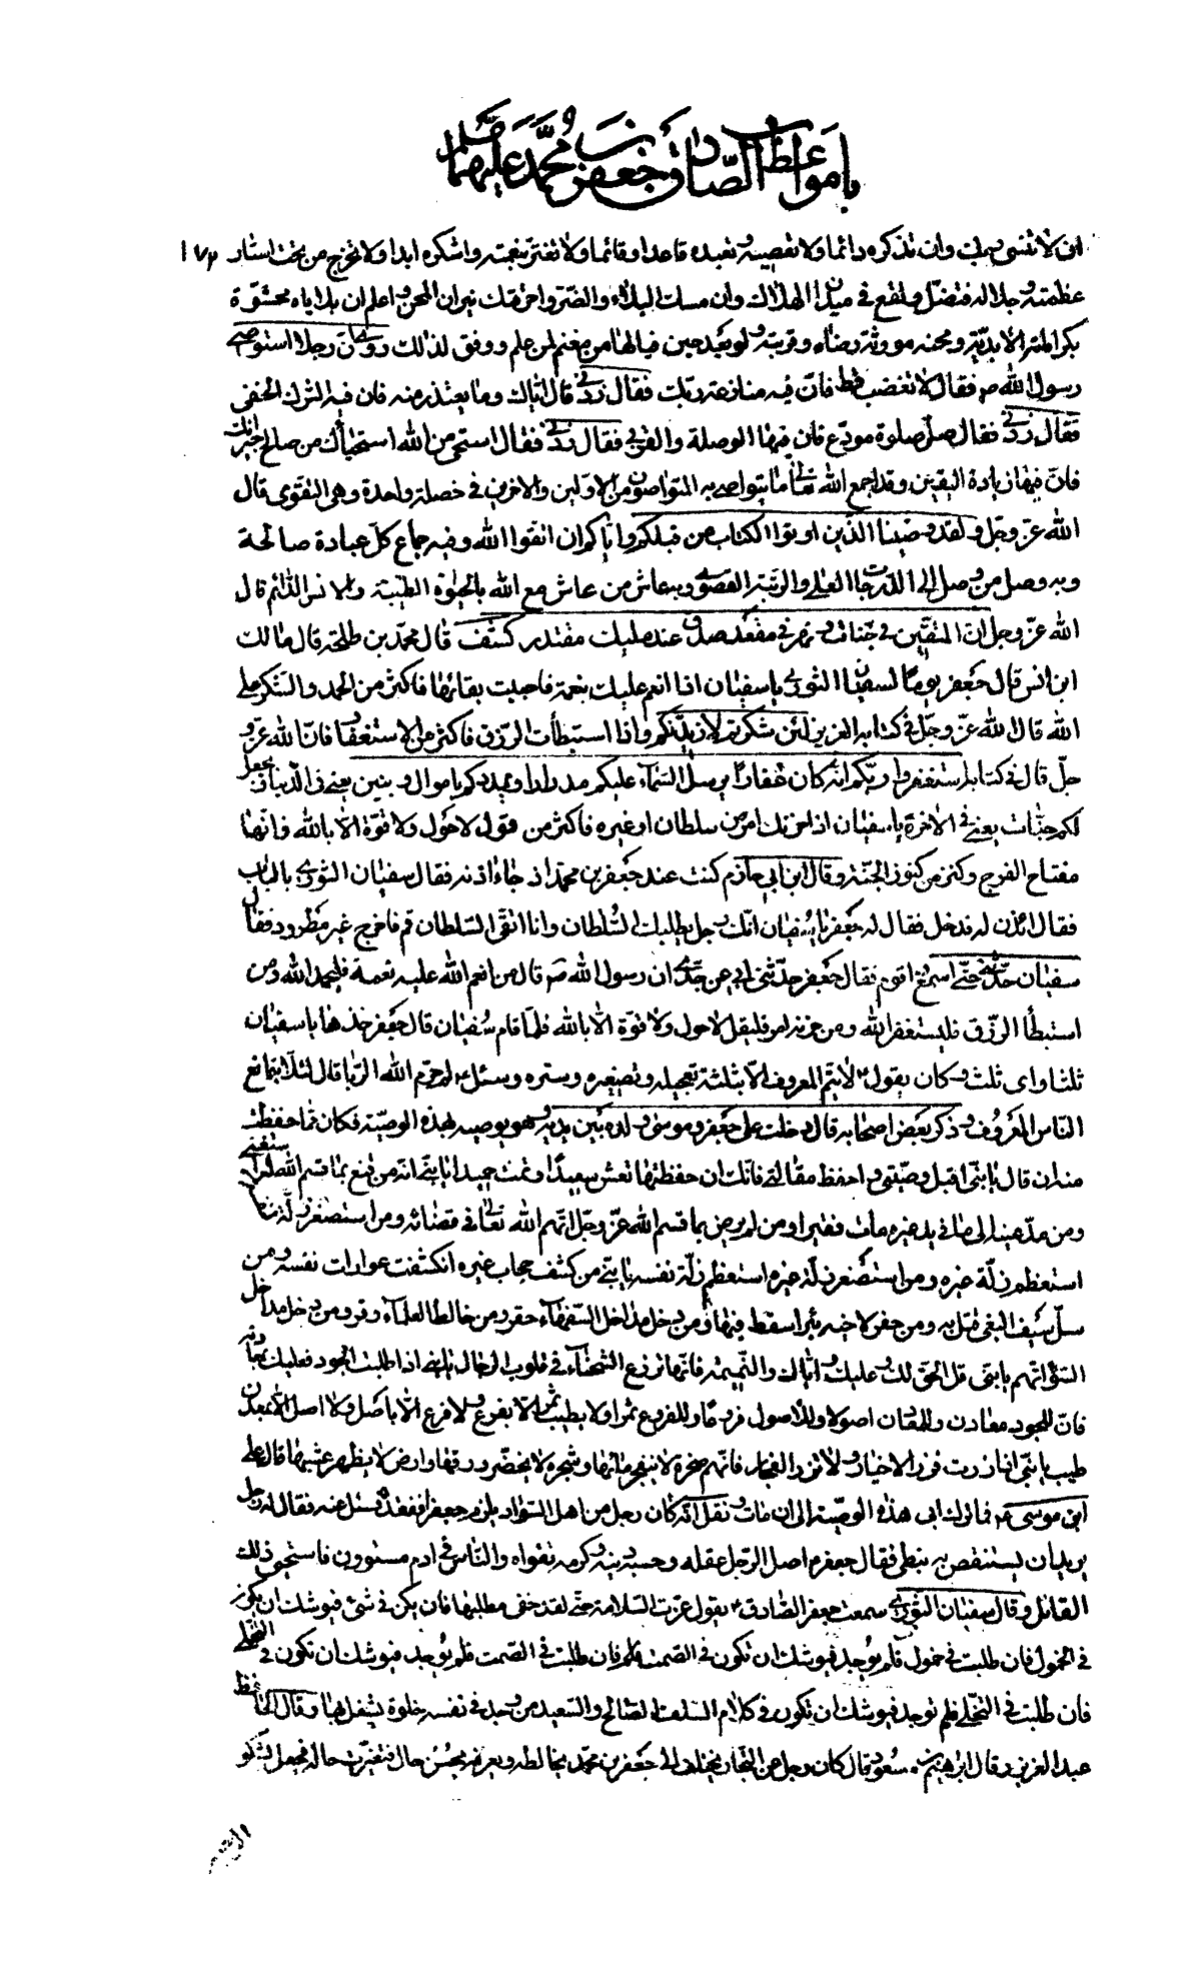 باب مواعظ الصادق جعفر بن محمد عليهما السلام
ان لا تنسى ربك وان تذكره دائما ولا تعصيه وتعبده قاعدا وقائما ولا تغتر بنعمته واشكره ابدا ولا تخرج من تحت استار ١٧٣
عظمته وجلاله فتضل وتقع في ميدان الهلاك وان مسك البلاء والضر واحرقتك نيران المحن واعلم ان بلاياه محشوة
بكراماته الابدية ومحنه مورثة رضاه وقربته ولو بعد حين فيا لها من مغنم لمن علم ووفق لذلك روى ان رجلا استوصى
رسول الله ص فقال لا تغضب قط فان فيه منازعة ربك فقال زدني قال اياك وما يعتذر منه فان فيه الشرك الخفي
فقال زدني فقال صل صلوة مودع فان فيها الوصلة والقربى فقال زدني فقال استحي من الله استحياك من صالح جيرانك
فان فيها زيادة اليقين وقد اجمع الله تعالى ما يتواصى به المتواصون من الاولين والاخرين في خصلة واحدة وهي التقوى قال
الله عز وجل ولقد وصينا الذين اوتوا الكتاب من قبلكم واياكم ان اتقوا الله وفيه جماع كل عبادة صالحة
وبه وصل من وصل الى الدرجات العلى والرتبة القصوى وبه عاش من عاش مع الله بالحيوة الطيبة والانس الدائم قال
الله عز وجل ان المتقين في جنات ونهر في مقعد صدق عند مليك مقتدر كشف قال محمد بن طلحة قال مالك
ابن انس قال جعفر يوما لسفيان الثوري يا سفيان اذا انعم عليك بنعمة فاحببت بقائها فاكثر من الحمد والشكر على
الله قال الله عز وجل في كتابه العزيز لئن شكرتم لازيدنكم واذا استبطأت الرزق فاكثر من الاستغفار فان الله عز و
جل قال في كتابه استغفروا ربكم انه كان غفارا يرسل السماء عليكم مدرارا ويمددكم باموال وبنين يعني في الدنيا ويجعل
لكم جنات يعني في الاخرة يا سفيان اذا حزنك امر من سلطان او غيره فاكثر من قول لا حول ولا قوة الا بالله فانها
مفتاح الفرج وكنز من كنوز الجنة وقال ابن ابي حازم كنت عند جعفر بن محمد اذ جاء اذنه فقال سفيان الثوري بالباب
فقال ائذن له فدخل فقال له جعفر يا سفيان انك رجل يطلبك السلطان وانا اتقي السلطان قم فاخرج غير مطرود فقال
سفيان حدثني حتى اسمع اقوم فقال جعفر حدثني ابي عن جدي ان رسول الله ص قال من انعم الله عليه نعمة فليحمد الله ومن
استبطأ الرزق فليستغفر الله ومن حزنه امر فليقل لا حول ولا قوة الا بالله فلما قام سفيان قال جعفر خذها يا سفيان
ثلثا واى ثلث وكان يقول ع لا يتم المعروف الا بثلثة تعجيله وتصغيره وستره وسئل ع لم حرم الله الربا قال لئلا يتمانع
الناس المعروف وذكر بعض اصحابه قال دخلت على جعفر وموسى ولده بين يديه وهو يوصيه بهذه الوصية فكان مما حفظت
منه ان قال يا بني اقبل وصيتي واحفظ مقالتي فانك ان حفظتها تعش سعيدا وتمت حميدا يا بني انه من قنع بما قسم الله له استغنى
ومن مد عينه الى ما في يد غيره مات فقيرا ومن لم يرض بما قسم الله عز وجل اتهم الله تعالى في قضائه ومن استصغر زلة نفسه
استعظم زلة غيره ومن استصغر زلة غيره استعظم زلة نفسه يا بني من كشف حجاب غيره انكشفت عورات نفسه ومن
سل سيف البغي قتل به ومن حفر لاخيه بئرا سقط فيها ومن دخل مداخل السفهاء حقر ومن خالط العلماء وقر ومن دخل مداخل
السوء اتهم يا بني قل الحق لك وعليك واياك والنميمة فانها تزرع الشحناء في قلوب الرجال يا بني اذا طلبت الجود فعليك بمعادنه
فان للجود معادن وللمعادن اصولا وللاصول فروعا وللفروع ثمرا ولا يطيب ثمر الا بفرع ولا فرع الا باصل ولا اصل الا بمعدن
طيب يا بني اذا زرت فزر الاخيار ولا تزر الفجار فانهم صخرة لا ينفجر ماؤها وشجرة لا يخضر ورقها وارض لا يظهر عشبها قال علي
ابن موسى ع فما ترك ابي هذه الوصية الى ان مات ونقل انه كان رجل من اهل السواد يلزم جعفرا ففقده فسئل عنه فقال له رجل
يريد ان يستنقص به نبطي فقال جعفر ع اصل الرجل عقله وحسبه دينه وكرمه تقواه والناس في ادم مستوون فاستحيى ذلك
القائل وقال سفيان الثوري سمعت جعفر الصادق ع يقول عزت السلامة حتى لقد خفى مطلبها فان يكن في شئ فيوشك ان يكون
في الخمول فان طلبت في خمول فلم يوجد فيوشك ان تكون في الصمت فان طلبت في الصمت فلم يوجد فيوشك ان تكون في التخلي
فان طلبت في التخلي فلم توجد فيوشك ان تكون في كلام السلف الصالح والسعيد من وجد في نفسه خلوة يشغل بها وقال الحافظ
عبد العزيز وقال ابرهيم بن مسعود قال كان رجل من التجار يختلف الى جعفر بن محمد يخالطه ويعرفه بحسن حال فتغيرت حاله فجعل يشكو